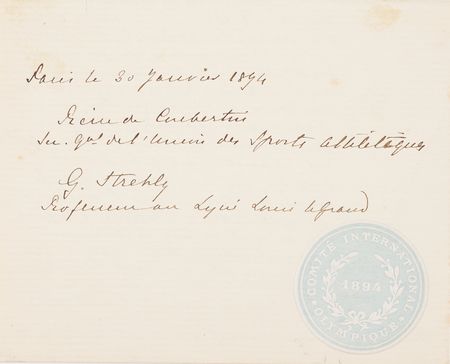 Paris le 30 Janvier 1894
Pierre de Coubertin
Sec. gal de l'Union des Sports Athlétiques
G. Strehly
Professeur au Lycée Louis le Grand
COMITÉ INTERNATIONAL
1894
OLYMPIQUE